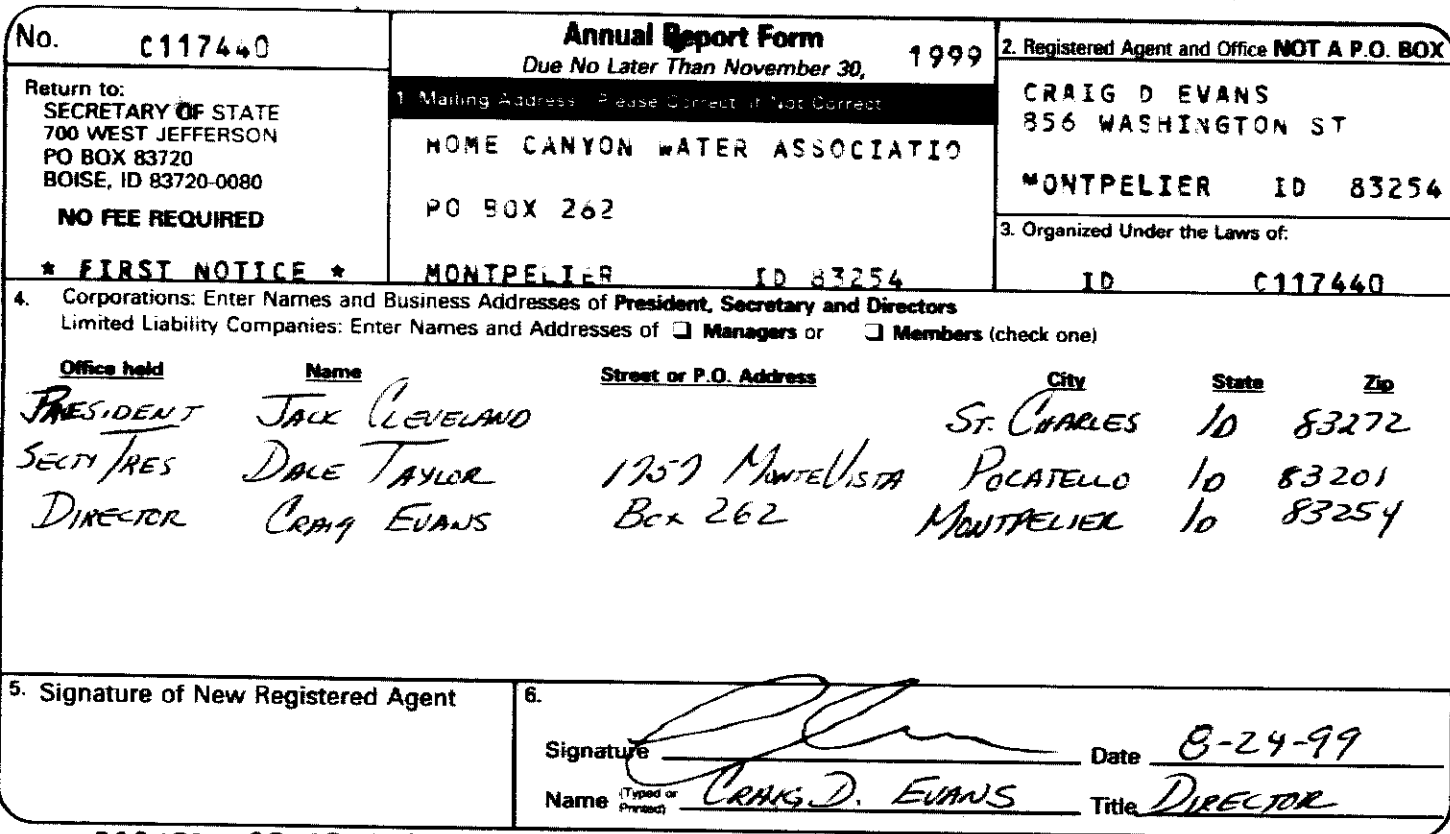 No. C117440
Return to:
SECRETARY OF STATE
700 WEST JEFFERSON
PO BOX 83720
BOISE, ID 83720-0080
NO FEE REQUIRED
* FIRST NOTICE *
Annual Report Form 1999
Due No Later Than November 30,
1. Mailing Address Please Correct if Not Correct
HOME CANYON WATER ASSOCIATIO
PO BOX 262
MONTPELIER ID 83254
2. Registered Agent and Office NOT A P.O. BOX
CRAIG D EVANS
856 WASHINGTON ST
MONTPELIER ID 83254
3. Organized Under the Laws of:
ID C117440
4. Corporations: Enter Names and Business Addresses of President, Secretary and Directors
Limited Liability Companies: Enter Names and Addresses of ❑ Managers or ❑ Members (check one)
Office held Name Street or P.O. Address City State Zip
PRESIDENT JACK CLEVELAND ST. CHARLES ID 83272
SECTY/TRES DALE TAYLOR 1757 MONTEVISTA POCATELLO ID 83201
DIRECTOR CRAIG EVANS BOX 262 MONTPELIER ID 83254
5. Signature of New Registered Agent
6.
Signature Date 8-24-99
Name (Typed or Printed) CRAIG D. EVANS Title DIRECTOR